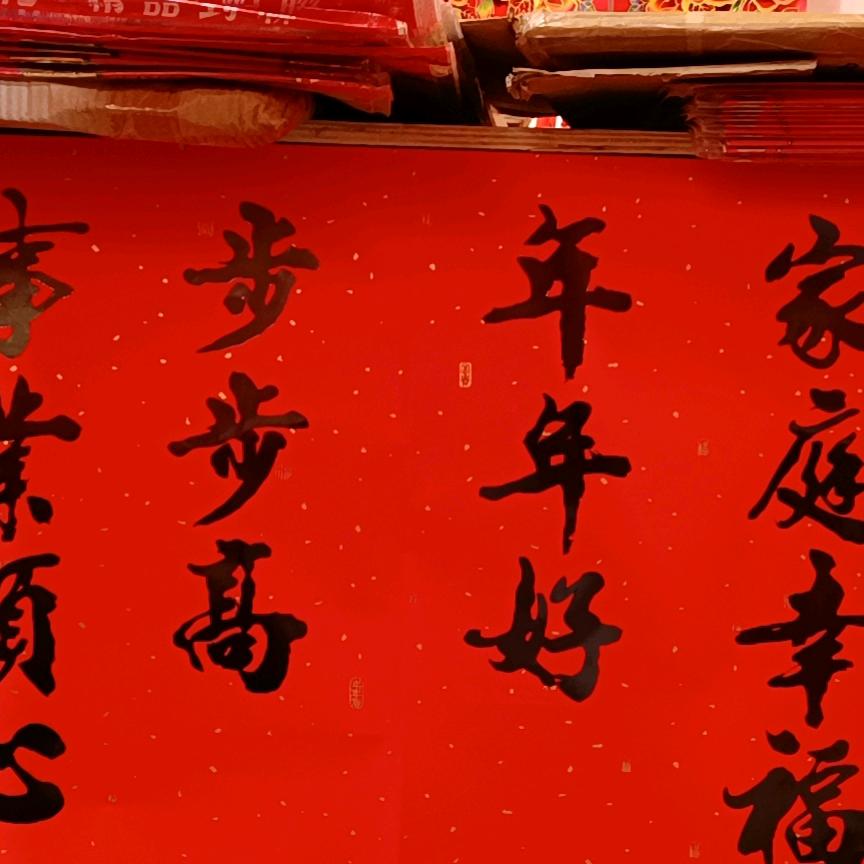 家庭幸福
年年好
步步高
事業順心